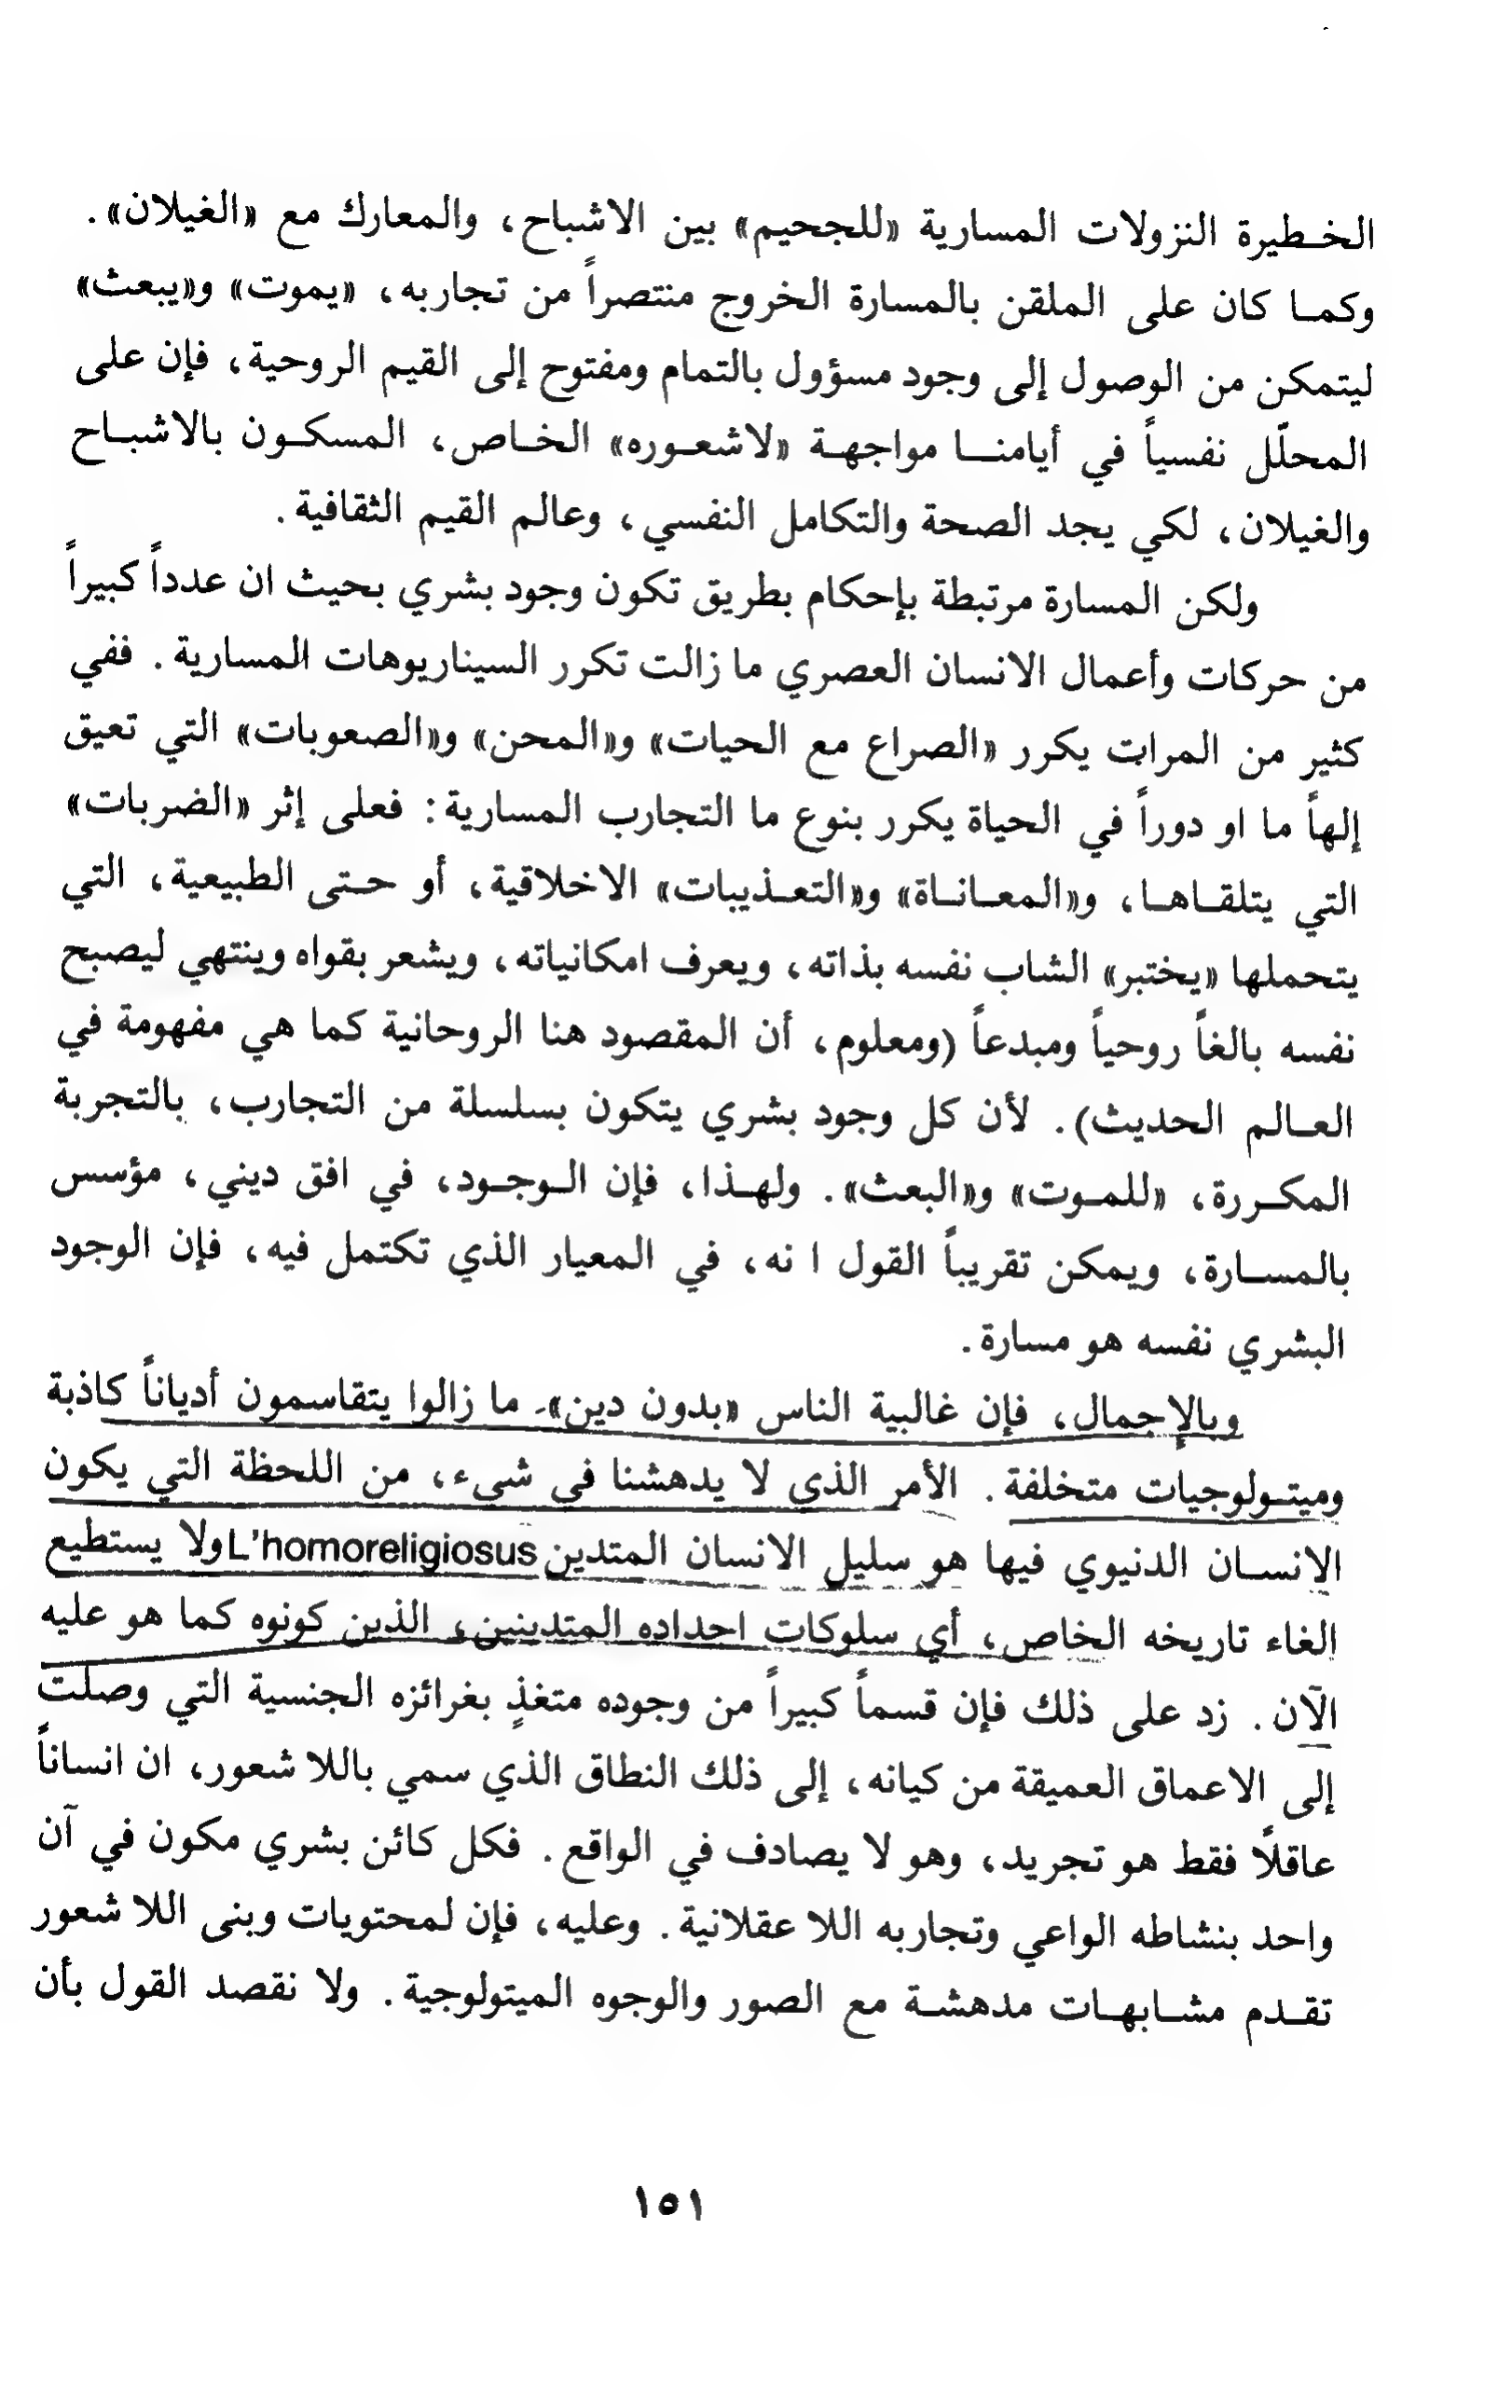 الخطيرة النزولات المسارية «للجحيم» بين الاشباح، والمعارك مع «الغيلان».
وكما كان على الملقن بالمسارة الخروج منتصراً من تجاربه، «يموت» و«يبعث»
ليتمكن من الوصول إلى وجود مسؤول بالتمام ومفتوح إلى القيم الروحية، فإن على
المحلّل نفسياً في أيامنا مواجهة «لاشعوره» الخاص، المسكون بالاشباح
والغيلان، لكي يجد الصحة والتكامل النفسي، وعالم القيم الثقافية.
ولكن المسارة مرتبطة بإحكام بطريق تكون وجود بشري بحيث ان عدداً كبيراً
من حركات وأعمال الانسان العصري ما زالت تكرر السيناريوهات المسارية. ففي
كثير من المرات يكرر «الصراع مع الحيات» و«المحن» و«الصعوبات» التي تعيق
إلهاً ما او دوراً في الحياة يكرر بنوع ما التجارب المسارية: فعلى إثر «الضربات»
التي يتلقاها، و«المعاناة» و«التعذيبات» الاخلاقية، أو حتى الطبيعية، التي
يتحملها «يختبر» الشاب نفسه بذاته، ويعرف امكانياته، ويشعر بقواه وينتهي ليصبح
نفسه بالغاً روحياً ومبدعاً (ومعلوم، أن المقصود هنا الروحانية كما هي مفهومة في
العالم الحديث). لأن كل وجود بشري يتكون بسلسلة من التجارب، بالتجربة
المكررة، «للموت» و«البعث». ولهذا، فإن الوجود، في افق ديني، مؤسس
بالمسارة، ويمكن تقريباً القول ا نه، في المعيار الذي تكتمل فيه، فإن الوجود
البشري نفسه هو مسارة.
وبالإجمال، فإن غالبية الناس «بدون دين»- ما زالوا يتقاسمون أدياناً كاذبة
وميتولوجيات متخلفة. الأمر الذي لا يدهشنا في شيء، من اللحظة التي يكون
الإنسان الدنيوي فيها هو سليل الانسان المتدين L'homoreligiosus ولا يستطيع
الغاء تاريخه الخاص، أي سلوكات احداده المتدينين، الذين كونوه كما هو عليه
الآن. زد على ذلك فإن قسماً كبيراً من وجوده متغذٍ بغرائزه الجنسية التي وصلت
إلى الاعماق العميقة من كيانه، إلى ذلك النطاق الذي سمي باللا شعور، ان انساناً
عاقلاً فقط هو تجريد، وهو لا يصادف في الواقع. فكل كائن بشري مكون في آن
واحد بنشاطه الواعي وتجاربه اللا عقلانية. وعليه، فإن لمحتويات وبنى اللا شعور
تقدم مشابهات مدهشة مع الصور والوجوه الميتولوجية. ولا نقصد القول بأن
١٥١